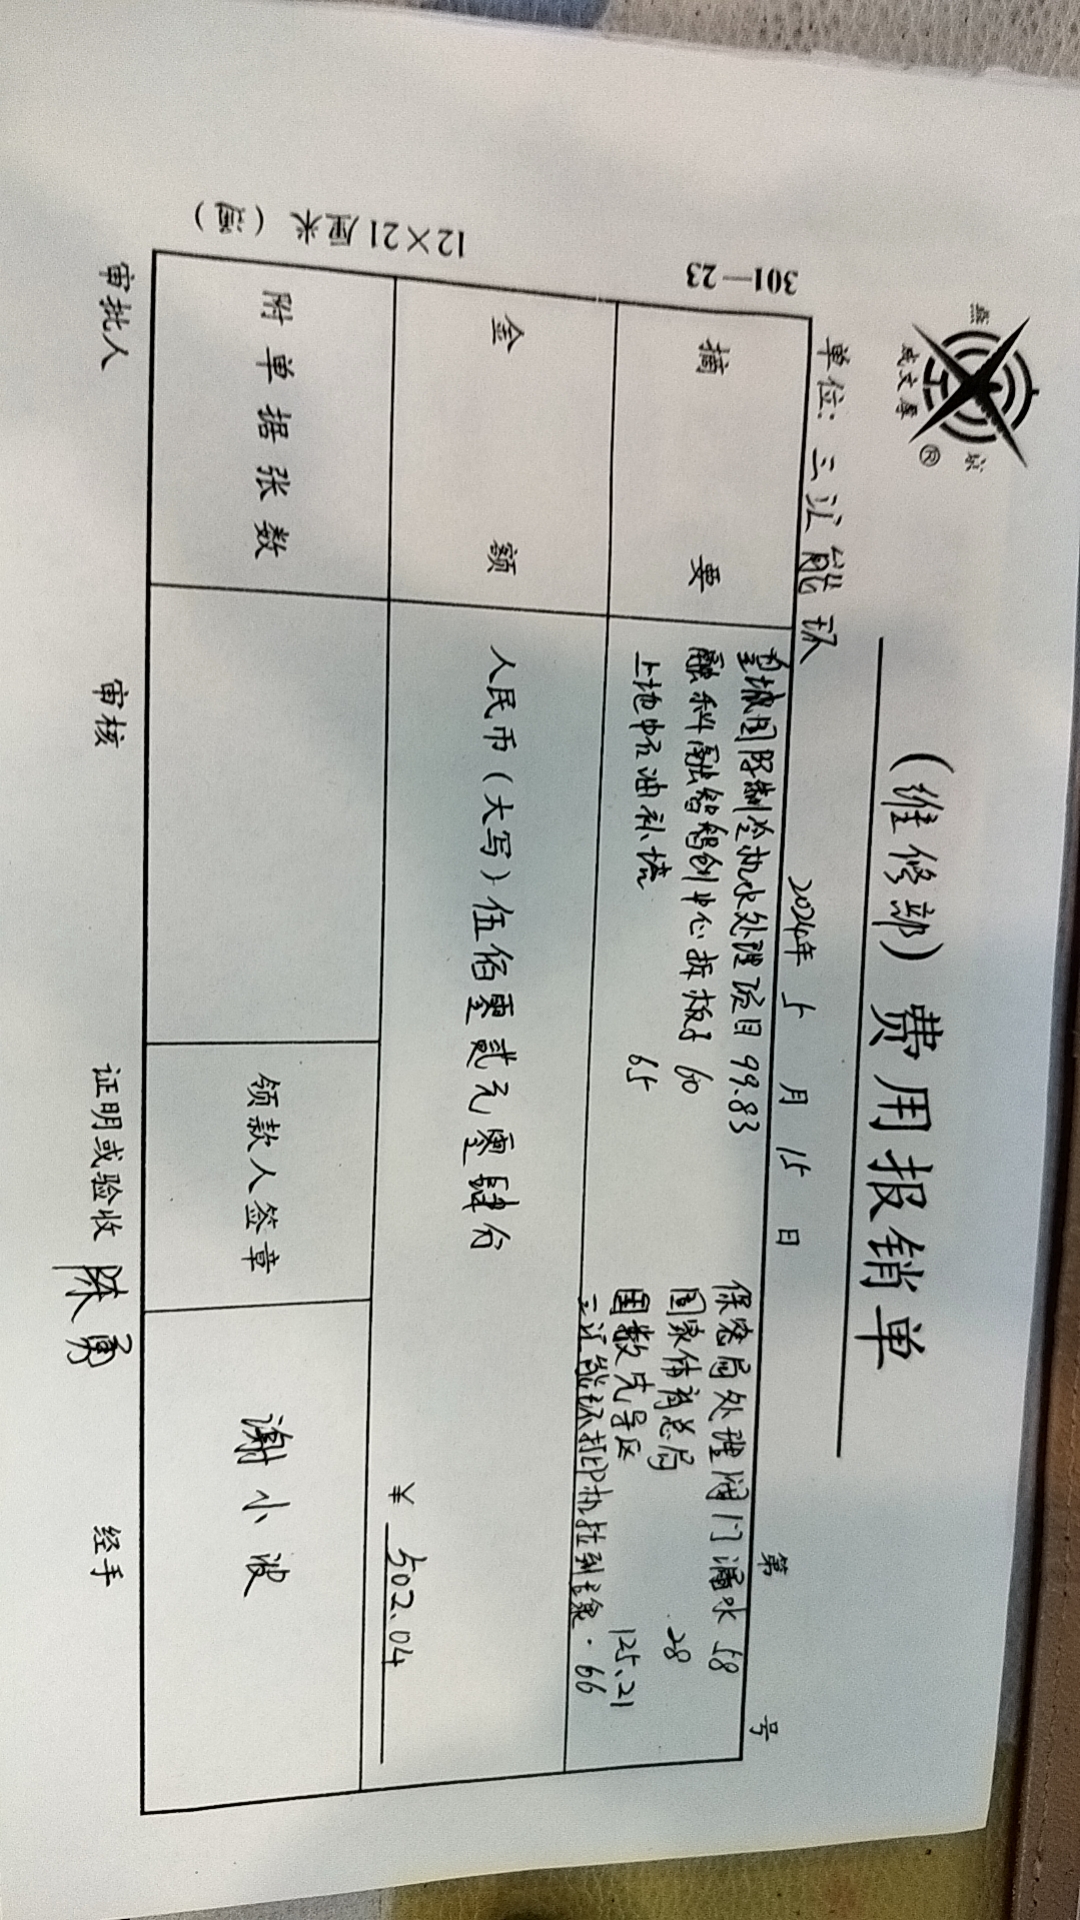 (维修部) 费用报销单
单位: 三江能环 2024年 5 月 15 日 第 号
摘要
皇城国际制冷机水处理项目 99.83 保密局处理阀门漏水 58
融科融智创中心拆板子 60 国家体育总局 28
上地中石油补漆 65 国数先导区 125.21
三江能环打印机拉到 66
金额
人民币(大写) 伍佰零贰元零肆分
¥ 502.04
附单据张数 领款人签章 谢小波
审批人 审核 证明或验收 陈勇 经手
301—23
12×21厘米 (通)